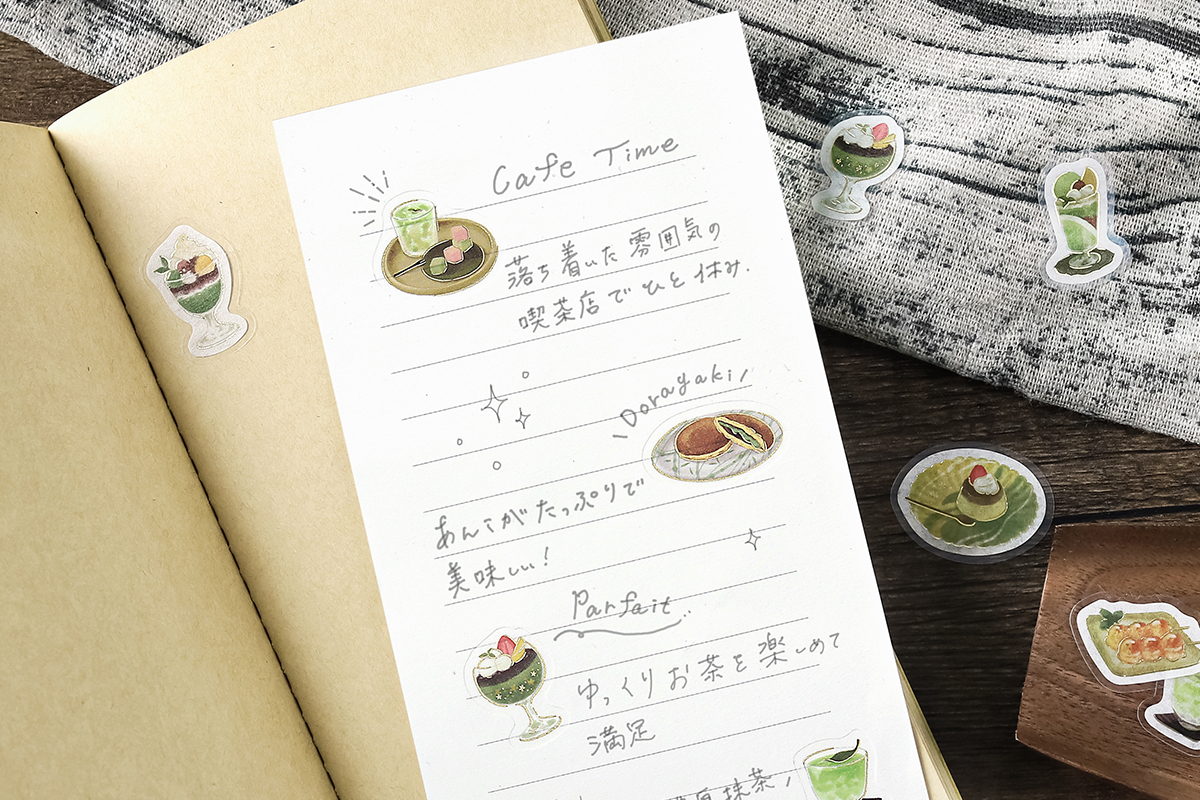 Cafe Time
落ち着いた雰囲気の
喫茶店でひと休み.
Dorayaki
あんこがたっぷりで
美味しい!
Parfait
ゆっくりお茶を楽しめて
満足
抹茶